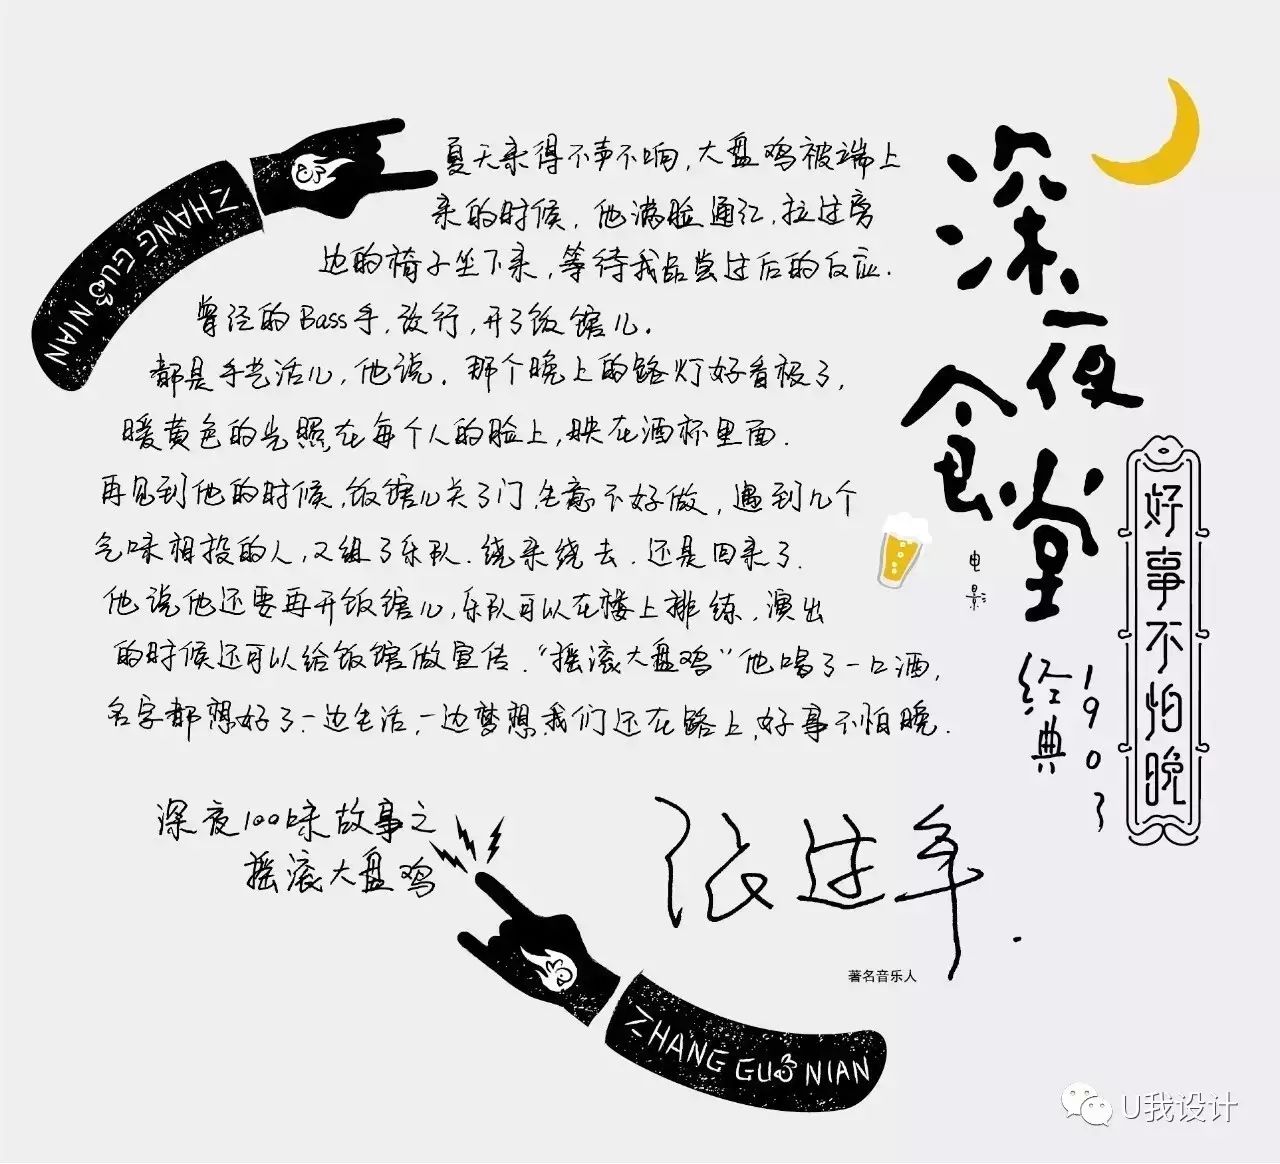 ZHANG GUO NIAN
夏天来得不声不响,大盘鸡被端上
来的时候,他满脸通红,拉过旁
边的椅子坐下来,等待我品尝过后的反应.
曾经的Bass手,改行,开了饭馆儿.
都是手艺活儿,他说.那个晚上的路灯好看极了,
暖黄色的光照在每个人的脸上,映在酒杯里面.
再见到他的时候,饭馆儿关了门,生意不好做,遇到几个
气味相投的人,又组了乐队.绕来绕去.还是回来了.
他说他还要再开饭馆儿,乐队可以在楼上排练,演出
的时候还可以给饭馆做宣传.“摇滚大盘鸡”他喝了一口酒,
名字都想好了.一边生活,一边梦想,我们还在路上,好事不怕晚.
深夜100味故事之
摇滚大盘鸡
张过年.
著名音乐人
ZHANG GUO NIAN
深夜
食堂
电影
经典
1903
好事不怕晚
U我设计